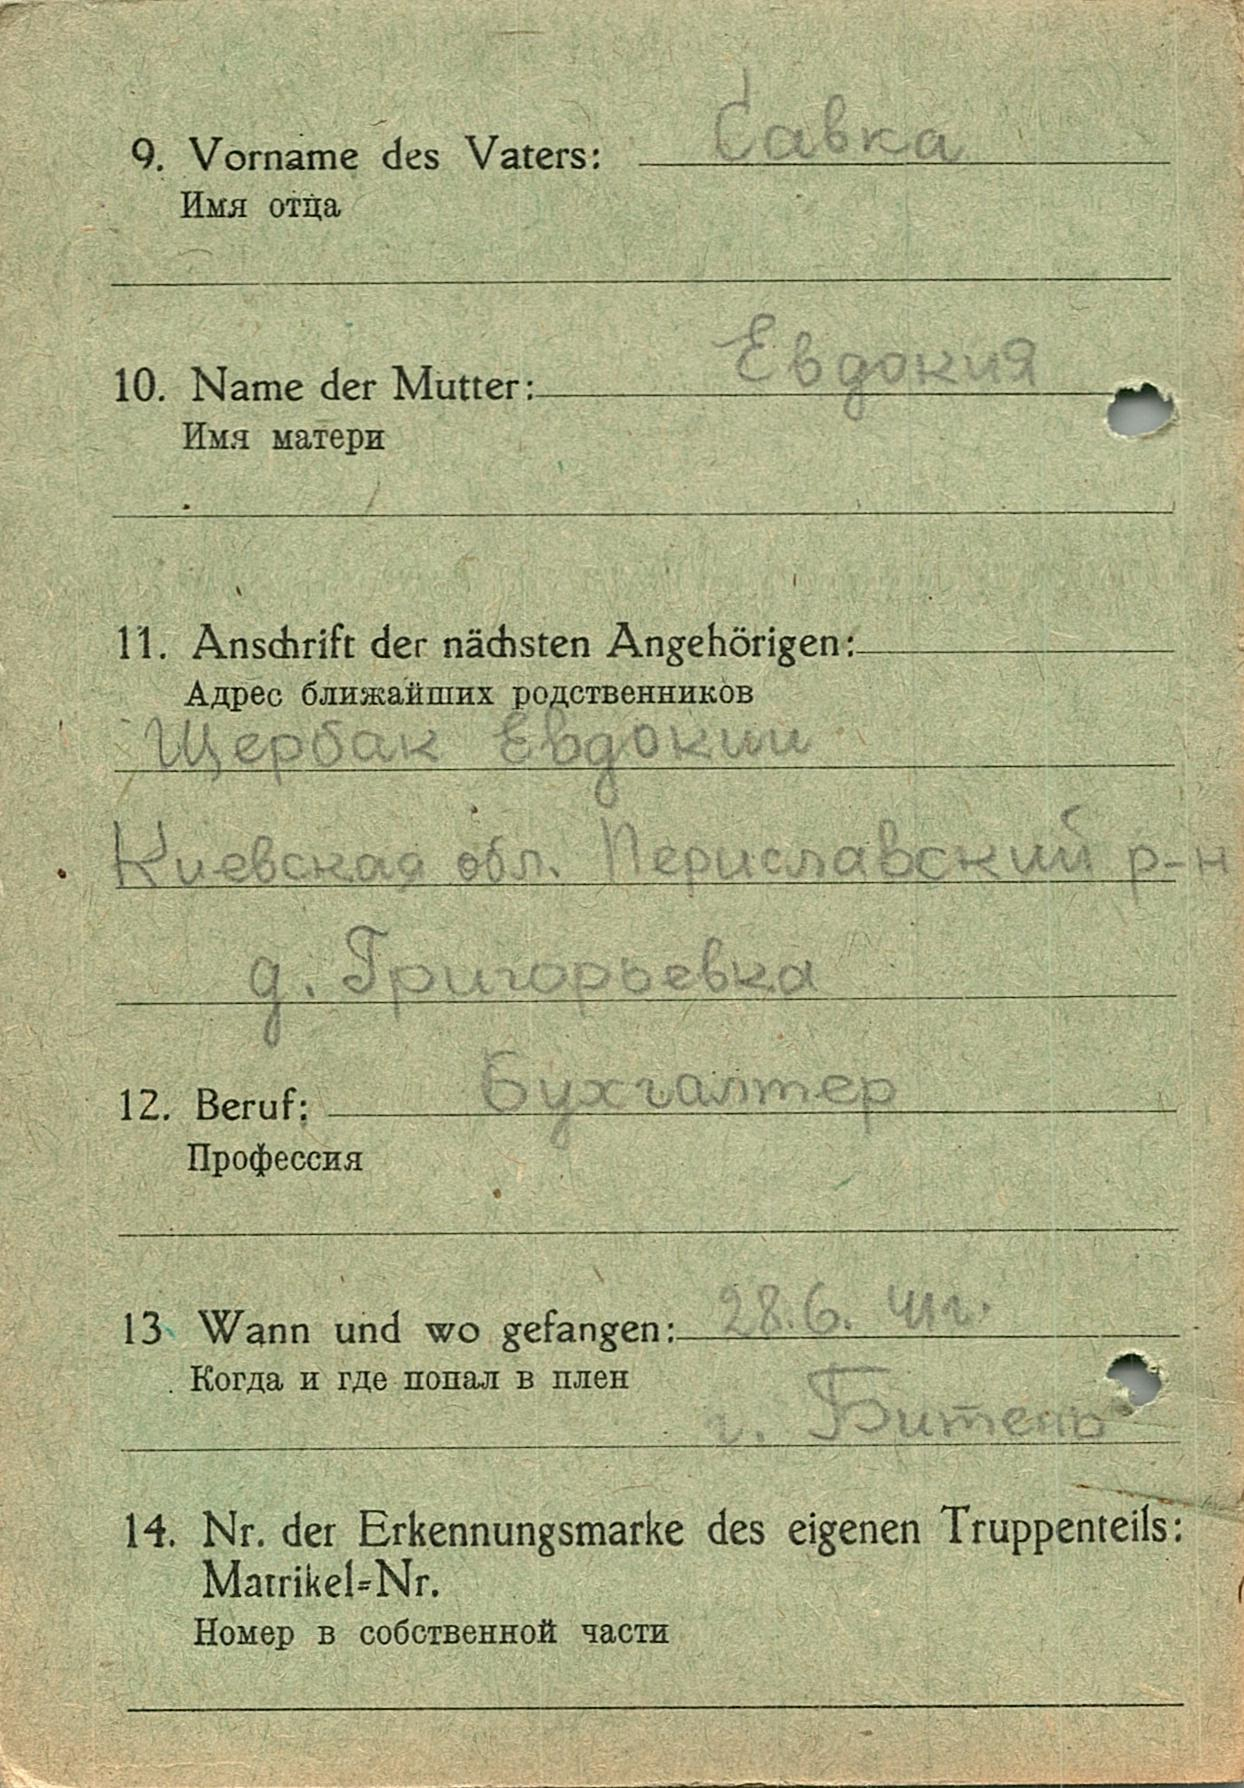 9. Vorname des Vaters: Савка
Имя отца
10. Name der Mutter: Евдокия
Имя матери
11. Anschrift der nächsten Angehörigen:
Адрес ближайших родственников
Щербак Евдокии
Киевская обл. Периславский р-н
д. Григорьевка
12. Beruf: Бухгалтер
Профессия
13 Wann und wo gefangen: 28.6. 41г.
Когда и где попал в плен
г. Битень
14. Nr. der Erkennungsmarke des eigenen Truppenteils:
Matrikel=Nr.
Номер в собственной части